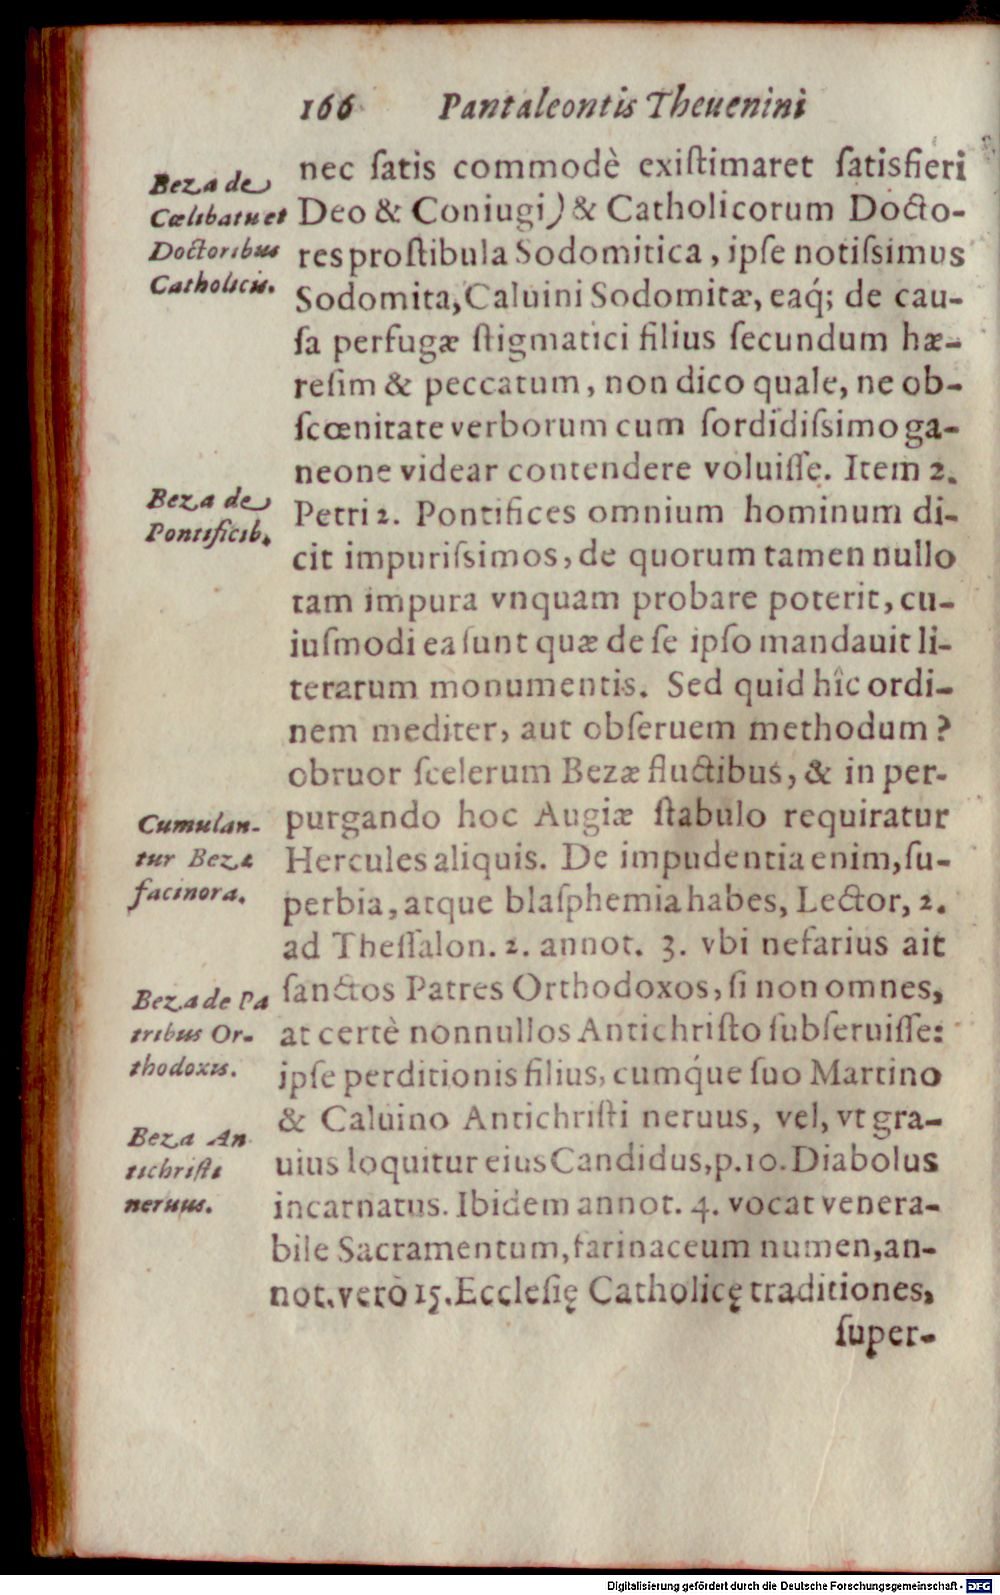 166 Pantaleontis Theuenini
nec ſatis commodè exiſtimaret ſatisfieri
Beza de
Cœlibatu et
Doctoribus
Catholicis.
Deo & Coniugi) & Catholicorum Docto-
res proſtibula Sodomitica, ipſe notiſsimus
Sodomita, Caluini Sodomitæ, eaq́; de cau-
ſa perfugæ ſtigmatici filius ſecundum hæ-
reſim & peccatum, non dico quale, ne ob-
ſcœnitate verborum cum ſordidiſsimo ga-
neone videar contendere voluiſſe. Item 2.
Beza de
Pontificib.
Petri 2. Pontifices omnium hominum di-
cit impuriſsimos, de quorum tamen nullo
tam impura vnquam probare poterit, cu-
iuſmodi ea ſunt quæ de ſe ipſo mandauit li-
terarum monumentis. Sed quid hîc ordi-
nem mediter, aut obſeruem methodum?
obruor ſcelerum Bezæ fluctibus, & in per-
Cumulan-
tur Bezæ
facinora.
purgando hoc Augiæ ſtabulo requiratur
Hercules aliquis. De impudentia enim, ſu-
perbia, atque blaſphemia habes, Lector, 2.
ad Theſſalon. 2. annot. 3. vbi nefarius ait
Beza de Pa
tribus Or-
thodoxis.
ſanctos Patres Orthodoxos, ſi non omnes,
at certè nonnullos Antichriſto ſubſeruiſſe:
ipſe perditionis filius, cumq́ue ſuo Martino
Beza An
tichriſti
neruus.
& Caluino Antichriſti neruus, vel, vt gra-
uius loquitur eius Candidus, p. 10. Diabolus
incarnatus. Ibidem annot. 4. vocat venera-
bile Sacramentum, farinaceum numen, an-
not. verò 15. Eccleſię Catholicę traditiones,
ſuper-
Digitalisierung gefördert durch die Deutsche Forschungsgemeinschaft - DFG